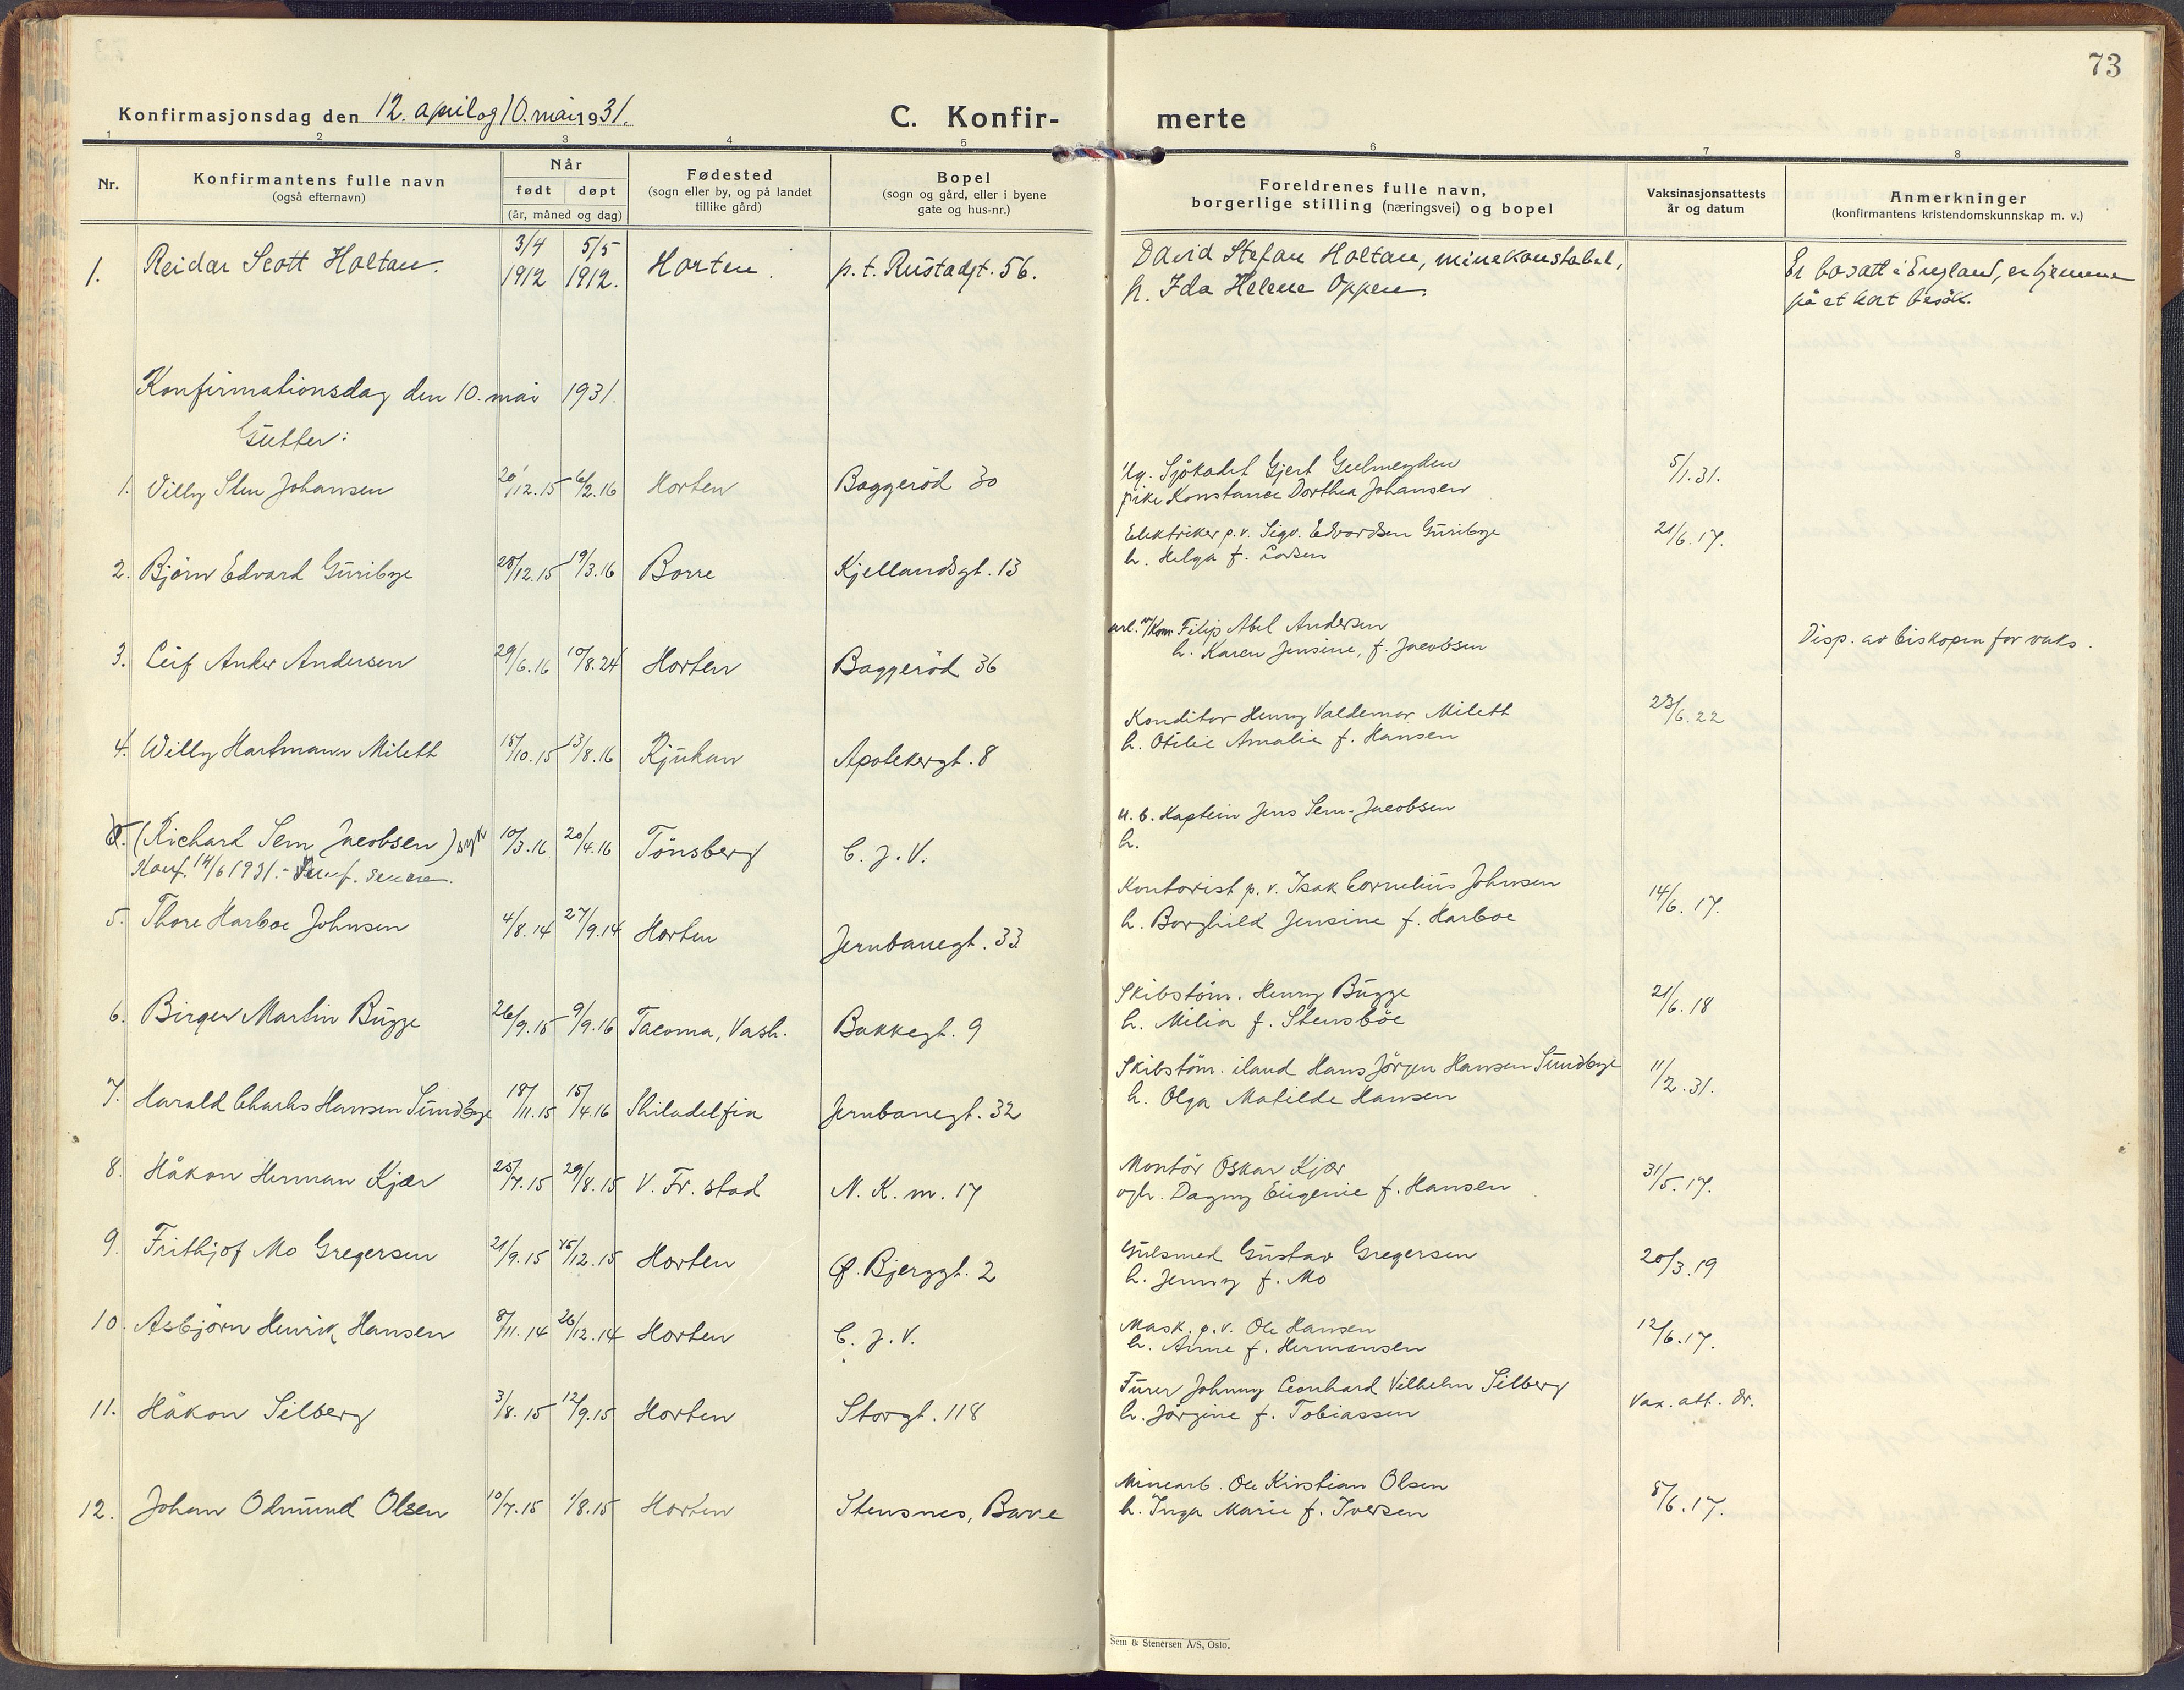 73
Konfirmasjonsdag den 12. april og 10. mai 1931.
C. Konfir- merte
1 2 3 4 5 6 7 8
Nr.
Konfirmantens fulle navn
(også efternavn)
Når
født døpt
(år, måned og dag)
Fødested
(sogn eller by, og på landet
tillike gård)
Bopel
(sogn og gård, eller i byene
gate og hus-nr.)
Foreldrenes fulle navn,
borgerlige stilling (næringsvei) og bopel
Vaksinasjonsattests
år og datum
Anmerkninger
(konfirmantens kristendomskunnskap m. v.)
1. Reidar Scott Holtan. 3/4 1912 5/5 1912. Horten. p. t. Rustadgt. 56. David Stefan Holtan, minekonstabel,
h. Ida Helene Oppen.
Er bosatt i England, er hjemme
på et kort besök.
Konfirmationsdag den 10. mai 1931.
Gutter:
1. Villy Sten Johansen 20/12.15 6/2.16 Horten Baggeröd 30 Ug. Sjökadet Gjert Geelmeyden
pike Konstance Dorthea Johansen 5/1.31.
2. Björn Edvard Guribye 28/12.15 19/3.16 Borre Kjellandsgt. 13 Elektriker p.v. Sigv. Edvardsen Guribye
h. Helga f. Larsen 21/6.17.
3. Leif Anker Andersen 29/6.16 10/8.24 Horten Baggeröd 36 Filip Abel Andersen
h. Karen Jensine, f. Jacobsen
Disp. av biskopen for vaks.
4. Willy Hartmann Mileth 15/10.15 13/8.16 Rjukan Apotekergt. 8 Konditor Henry Valdemar Mileth
h. Otilie Amalie f. Hansen 23/6.22
(Richard Sem Jacobsen) syk 10/3.16 20/4.16 Tönsberg C. J. V. U. b. Kaptein Jens Sem-Jacobsen
h.
Konf. 14/6 1931.
5. Thore Harboe Johnsen 4/8.14 27/9.14 Horten Jernbanegt. 33 Kontorist p. v. Isak Cornelius Johnsen
h. Borghild Jensine f. Harboe 14/6.17.
6. Birger Martin Bugge 26/9.15 9/9.16 Tacoma, Vash. Bakkegt. 9 Skibstöm. Henry Bugge
h. Milia f. Stensböe 21/6.18
7. Harald Charles Hansen Sundbye 18/11.15 15/4.16 Philadelfia Jernbanegt. 32 Skibstöm. iland Hans Jörgen Hansen Sundbye
h. Olga Matilde Hansen 11/2.31.
8. Håkon Herman Kjær 25/7.15 29/8.15 V. Fr. stad N. K. m. 17 Montör Oskar Kjær
ogh. Dagny Eugenie f. Hansen 31/5.17.
9. Frithjof Mo Gregersen 21/9.15 15/12.15 Horten Ø. Bjerggt. 2 Gulsmed Gustav Gregersen
h. Jenny f. Mo 20/3.19
10. Asbjörn Henrik Hansen 8/11.14 26/12.14 Horten C. J. V. Mask. p.v. Ole Hansen
h. Anne f. Hermansen 12/6.17.
11. Håkon Silberg 3/8.15 12/9.15 Horten Storgt. 118 Furer Johnny Leonhard Vilhelm Silberg
h. Jörgine f. Tobiassen Vax. att. dr.
12. Johan Odmund Olsen 10/7.15 1/8.15 Horten Stensnes, Borre Minearb. Ole Kristian Olsen
h. Inga Marie f. Iversen 8/6.17.
Sem & Stenersen A/S, Oslo.